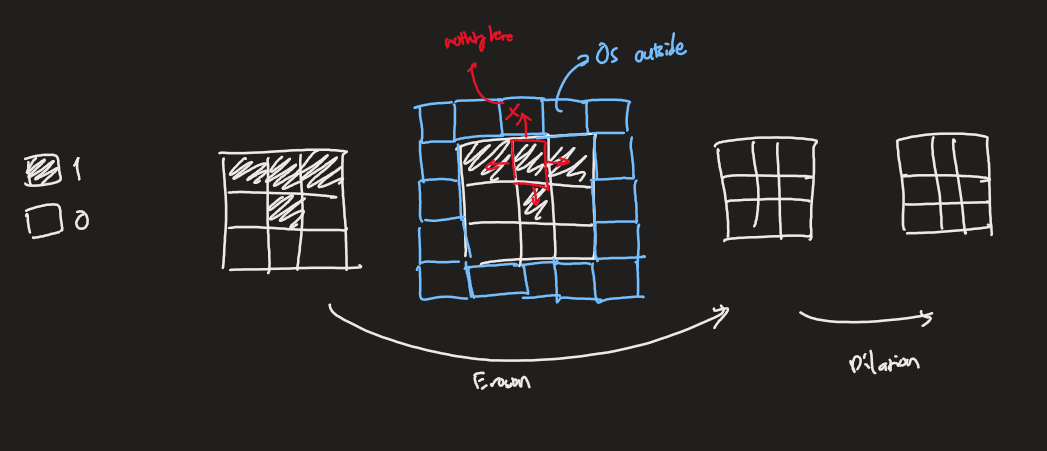 nothing here
0s outside
1
0
Erosion
Dilation